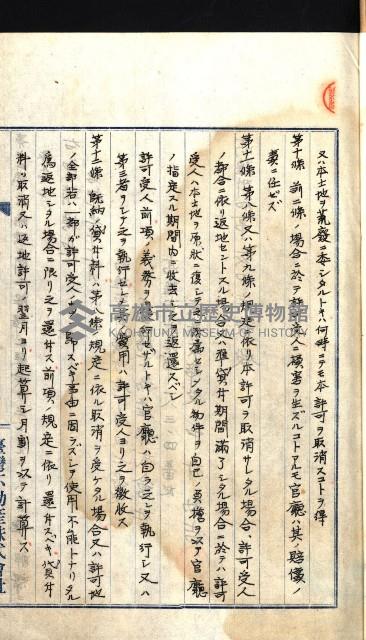 又ハ本土地ヲ荒廢セシメタルトキハ何時ニテモ本許可ヲ取消スコトヲ得
第十條 前二條ノ場合ニ於テ許可受人ニ損害ヲ生ズルコトアルモ官廳ハ其ノ賠償ノ
責ニ任ゼズ
第十一條 第八條又ハ第九條ノ規定ニ依リ本許可ヲ取消サレタル場合、許可受人
ノ都合ニ依リ返地セントスル場合又ハ貸付期間滿了シタル場合ニ於テハ許可
受人ハ本土地ヲ原狀ニ復シ シタル物件ヲ自己ノ負擔ヲ以テ官廳
ノ指定スル期間内ニ收去シ之ヲ返還スベシ
許可受人前項ノ義務ヲ履行セザルトキハ官廳ハ自ラ之ヲ執行シ又ハ
第三者ヲシテ之ヲ執行セシメ其ノ費用ハ許可受人ヨリ之ヲ徴收ス
第十二條 既納ノ貸付料ハ第 條ノ規定ニ依ル取消ヲ受ケタル場合又ハ許可地
ノ全部若ハ一部ガ許可受人ノ責ニ歸スベキ事由ニ因ラズシテ使用不能トナリタル
爲返地シタル場合ニ限リ之ヲ還付ス前項ノ規定ニ依リ還付スベキ貸付
料ハ取消又ハ返地許可ノ翌月ヨリ起算シ月割ヲ以テ計算ス
臺灣不動産株式會社
高雄市立歷史博物館
KAOHSIUNG MUSEUM OF HISTORY